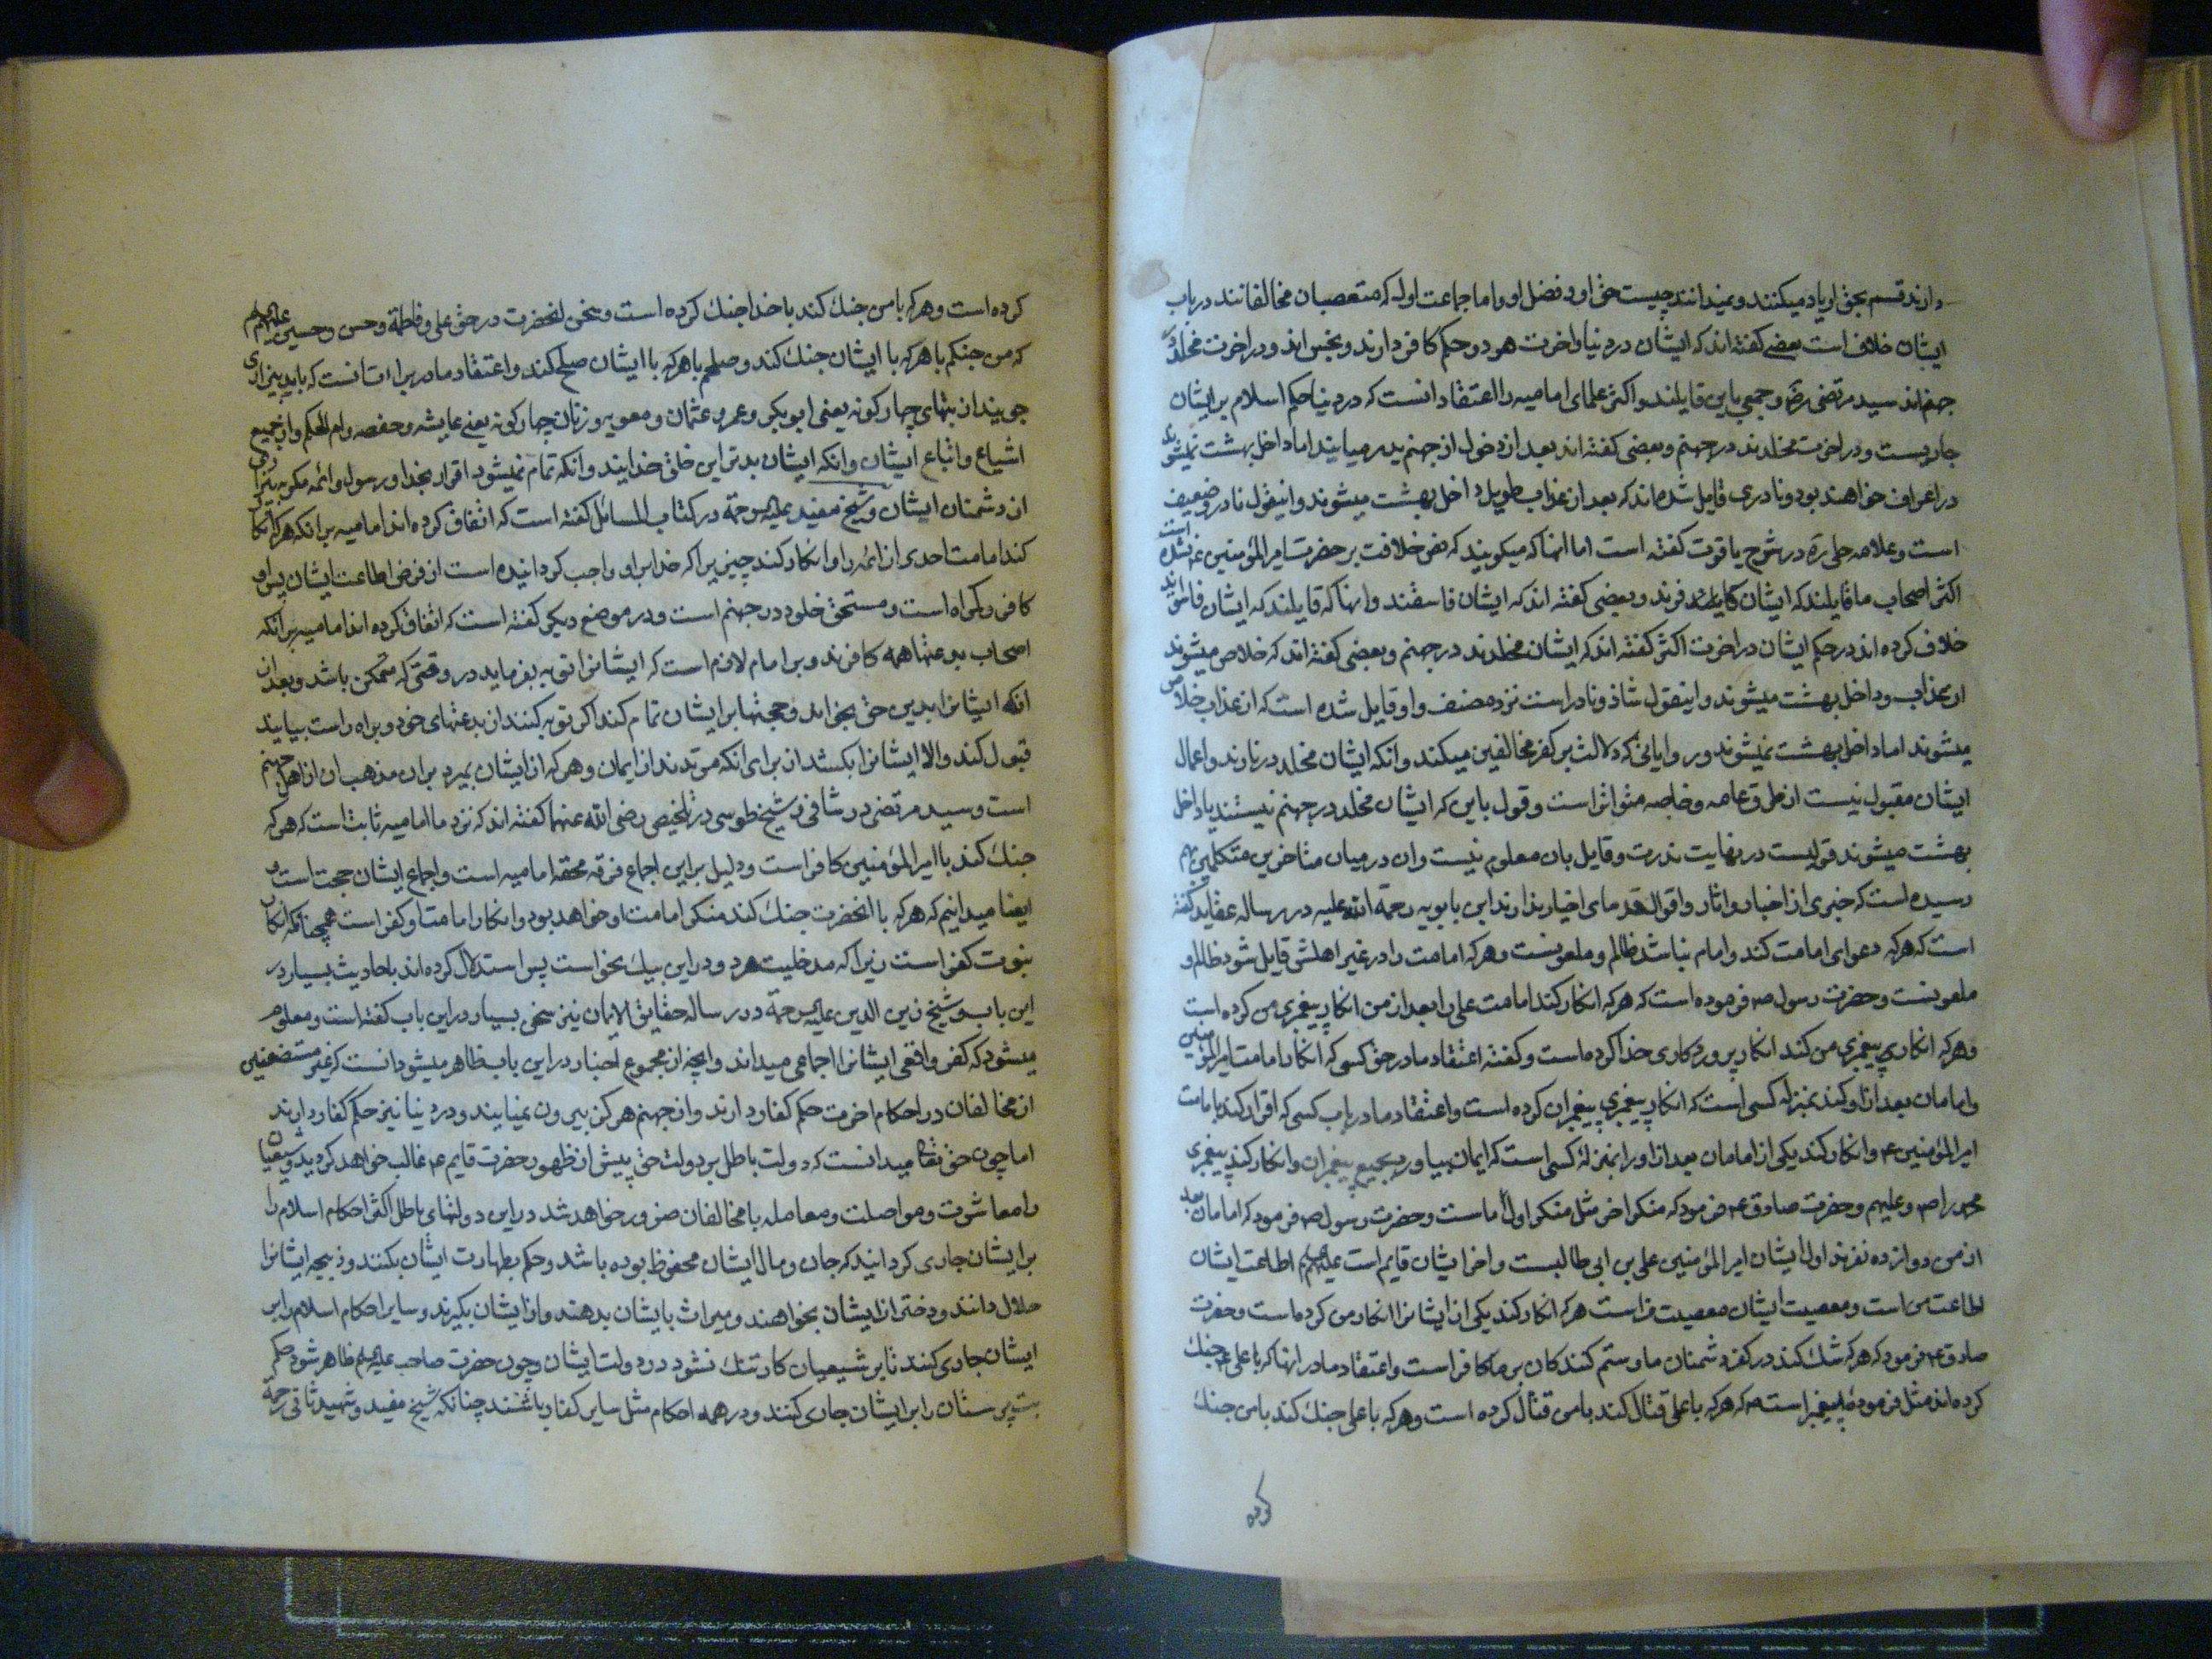 دارند قسم بحق او یاد میکنند و نمیدانند چیست حق او و فضل او و اما جماعت اول که متعصبان مخالفانند در باب
ایشان خلاف است بعضی کفته اند که ایشان در دنیا و اخرت هر دو حکم کافر دارند و نجس اند و در اخرت مخلد در
جهنم اند سید مرتضی رضه و جمعی باین قایلند و اکثر علمای امامیه را اعتقاد انست که در دنیا حکم اسلام بر ایشان
جاریست و در اخرت مخلدند در جهنم و بعضی کفته اند بعد از دخول از جهنم بدر میایند اما داخل بهشت نمیشوند
در اعراف خواهند بود و نادری قایل شده اند که بعد از عذاب طویل داخل بهشت میشوند و اینقول نادر و ضعیف
است و علامه حلی ره در شرح یاقوت کفته است اما انها که میکویند که نص خلافت بر حضرت امیرالمؤمنین ع نشده است
اکثر اصحاب ما قایلند که ایشان کافرند و بعضی کفته اند که ایشان فاسقند و انها که قایلند که ایشان فاسقند
خلاف کرده اند در حکم ایشان در اخرت اکثر کفته اند که ایشان مخلدند در جهنم و بعضی کفته اند که خلاص میشوند
از عذاب و داخل بهشت میشوند و اینقول شاذ و نادر است نزد مصنف و او قایل شده است که از عذاب خلاص
میشوند اما داخل بهشت نمیشوند و روایاتی که دلالت بر کفر مخالفین میکند و انکه ایشان مخلد در نارند و اعمال
ایشان مقبول نیست از طرق عامه و خاصه متواتر است و قول باین که ایشان مخلد در جهنم نیستند یا داخل
بهشت میشوند قولیست در نهایت ندرت و قایل بان معلوم نیست و ان در میان متاخرین متکلمین بهم
رسیده است که خبری از اخبار و اثار و اقوال قدمای اخیار ندارند ابن بابویه رحمة الله علیه در رساله عقاید کفته
است که هر که دعوای امامت کند و امام نباشد ظالم و ملعونست و هر که امامت را در غیر اهلش قایل شود ظالم و
ملعونست و حضرت رسول ص فرموده است که هر که انکار کند امامت علی را بعد از من انکار پیغمبری من کرده است
و هر که انکار پیغمبری من کند انکار پروردکاری خدا کرده است و کفته اعتقاد ما در حق کسی که انکار امامت امیرالمؤمنین
و امامان بعد از او کند بمنزله کسی است که انکار پیغمبری پیغمبران کرده است و اعتقاد ما در باب کسی که اقرار کند بامامت
امیرالمؤمنین ع و انکار کند یکی از امامان بعد از او را بمنزلۀ کسی است که ایمان بیاورد بجمیع پیغمبران و انکار کند پیغمبری
محمد را ص و علیهم و حضرت صادق ع فرمود که منکر اخر مثل منکر اول ماست و حضرت رسول ص فرمود که امامان بعد
از من دوازده نفرند اول ایشان امیرالمؤمنین علی بن ابی طالبست و اخر ایشان قایم است علیهم السلام اطاعت ایشان
اطاعت من است و معصیت ایشان معصیت من است هر که انکار کند یکی از ایشان را انکار من کرده است و حضرت
صادق ع فرمود که هر که شک کند در کفر دشمنان ما و ستم کنندکان بر ما کافر است و اعتقاد ما در انها که با علی ع جنك
کرده اند مثل فرموده پیغمبر است ص که هر که با علی قتال کند با من قتال کرده است و هر که با علی جنك کند با من جنك
کرده
کرده است و هر که با من جنك کند با خدا جنك کرده است و سخن انحضرت در حق علی و فاطمة و حسن و حسین علیهم السلام
که من جنکم با هر که با ایشان جنك کند و صلحم با هر که با ایشان صلح کند و اعتقاد ما در برائت انست که باید بیزاری
جویند از بتهای چهار کونه یعنی ابو بکر و عمر و عثمان و معویه و زنان چهار کونه یعنی عایشه و حفصه و ام الحکم و از جمیع
اشیاع و اتباع ایشان و انکه ایشان بدترین خلق خدایند و انکه تمام نمیشود اقرار بخدا و رسول و ائمه مکر به بیزاری
از دشمنان ایشان و شیخ مفید علیه الرحمة در کتاب المسائل کفته است که اتفاق کرده اند امامیه بر انکه هر که انکار
کند امامت احدی از ائمه را و انکار کند چیزیرا که خدا بر او واجب کردانیده است از فرض اطاعت ایشان پس او
کافر و کمراه است و مستحق خلود در جهنم است و در موضع دیکر کفته است که اتفاق کرده اند امامیه بر انکه
اصحاب بدعتها همه کافرند و بر امام لازم است که ایشانرا توبه بفرماید در وقتی که متمکن باشد و بعد از
انکه ایشانرا بدین حق بخواند و حجتها بر ایشان تمام کند اکر توبه کنند از بدعتهای خود و براه راست بیایند
قبول کند و الا ایشانرا بکشد از برای انکه مرتدند از ایمان و هر که از ایشان بمیرد بران مذهب ان از اهل جهنم
است و سید مرتضی در شافی و شیخ طوسی در تلخیص رضی الله عنهما کفته اند که نزد ما امامیه ثابت است که هر که
جنك کند با امیرالمؤمنین کافر است و دلیل بر این اجماع فرقه محقه امامیه است و اجماع ایشان حجت است و
ایضا میدانیم که هر که با انحضرت جنك کند منکر امامت او خواهد بود و انکار امامت او کفر است همچنانکه انکار
نبوت کفر است زیرا که مدخلیت هر دو در این بیك نحو است پس استدلال کرده اند باحادیث بسیار در
این باب و شیخ زین الدین علیه الرحمة در رساله حقایق الایمان نیز سخن بسیار در این باب کفته است و معلوم
میشود که کفر واقعی ایشانرا اجماعی میداند و انچه از مجموع اخبار در این باب ظاهر میشود انست که غیر مستضعفین
از مخالفان در احکام اخرت حکم کفار دارند و از جهنم هرکز بیرون نمیایند و در دنیا نیز حکم کفار دارند
اما چون حق تعالی میدانست که دولت باطل بر دولت حق پیش از ظهور حضرت قایم ع غالب خواهد کردید و شیعیان
را معاشرت و مواصلت و معامله با مخالفان ضرور خواهد شد در این دولتهای باطل اکثر احکام اسلام را
بر ایشان جاری کردانید که جان و مال ایشان محفوظ بوده باشد و حکم بطهارت ایشان بکنند و ذبیحه ایشانرا
حلال دانند و دختر از ایشان بخواهند و میراث بایشان بدهند و از ایشان بکیرند و سایر احکام اسلام را بر
ایشان جاری کنند تا بر شیعیان کار تنك نشود در دولت ایشان و چون حضرت صاحب علیه السلام ظاهر شود حکم
بت پرستان را بر ایشان جاری کنند و در همه احکام مثل سایر کفار باشند چنانکه شیخ مفید و شهید ثانی رحمة